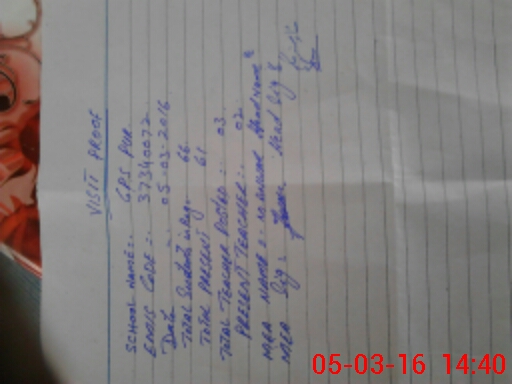 VISIT PROOF
SCHOOL NAME:- GPS PUR
EMIS CODE:- 37340072
Date 05-03-2016
TOTAL Students in Reg. 66
TOTAL PRESENT 61
TOTAL TEACHER POSTED:- 03
PRESENT TEACHER:- 02
MEA NAME:- Head Name
MEA Sig:- Head Sig
05-03-16 14:40